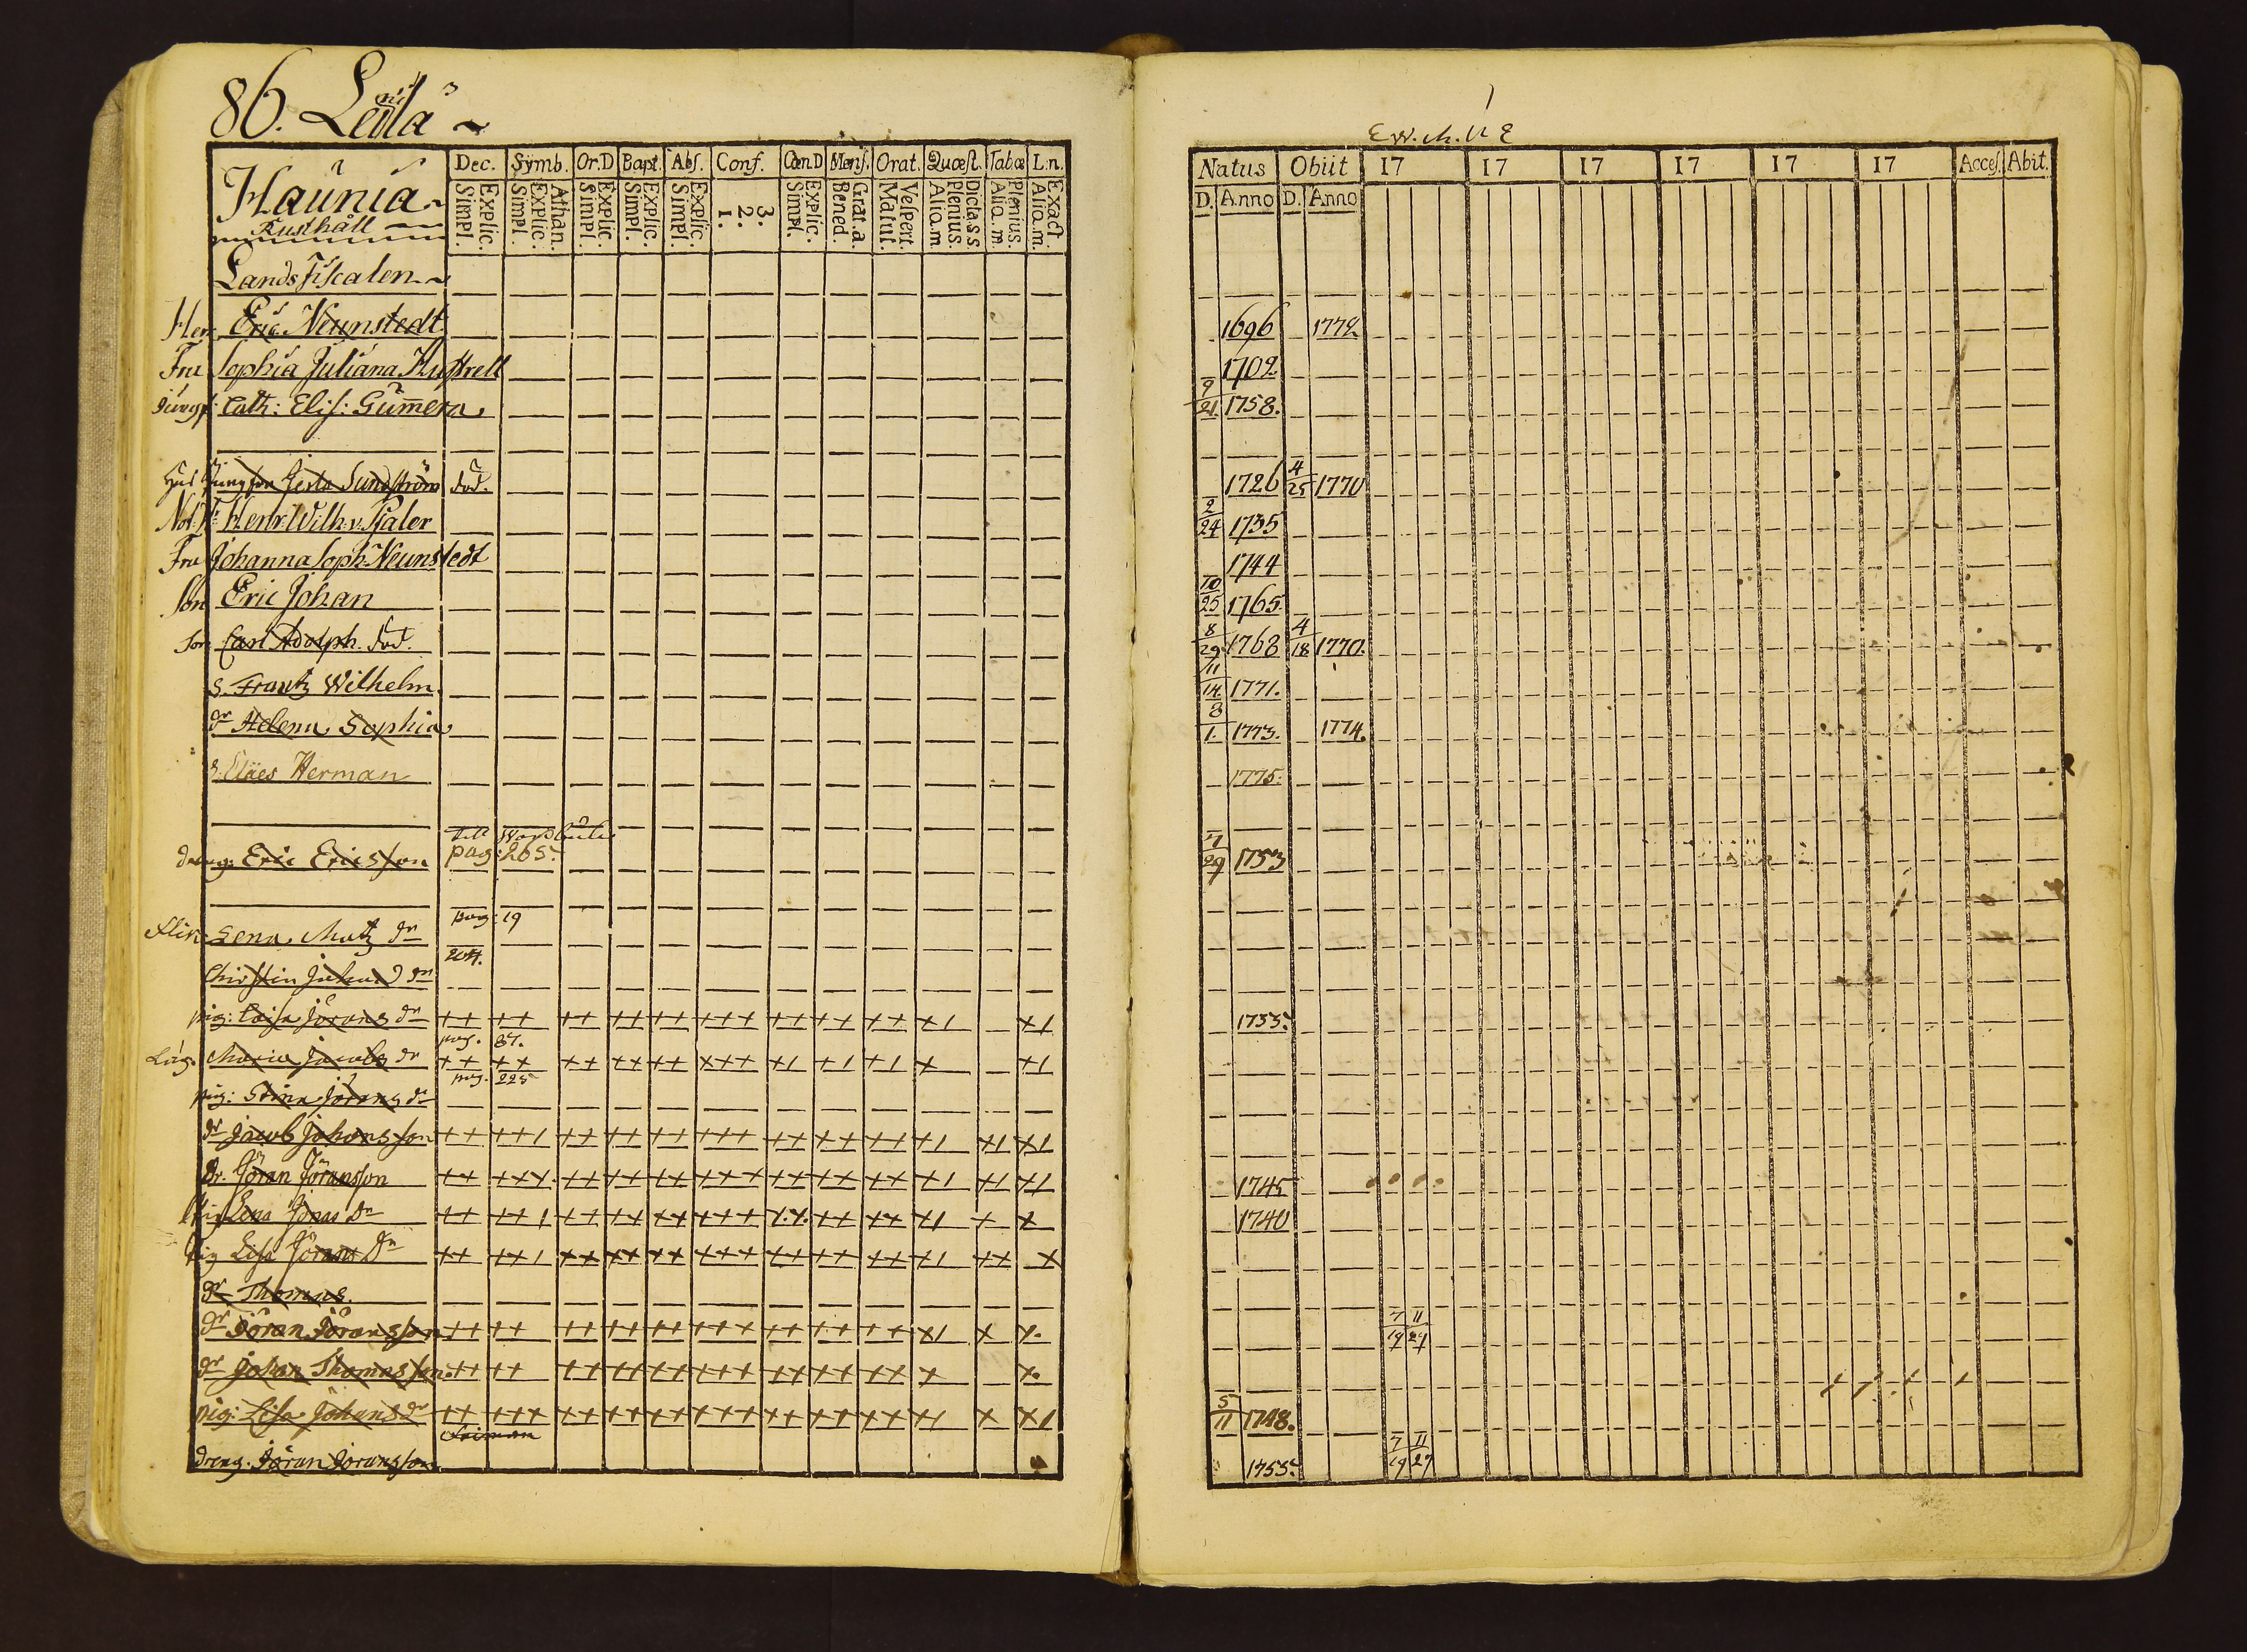 86. Leilä
Haunia
Rusthåll
Dec. Symb. Or.D Bapt. Abs. Conf. Cœn D Mens. Orat. Quæst. Tabœ L.n.
Explic. Simpl. Athan. Explic. Simpl. Explic. Simpl. Explic. Simpl. Explic. Simpl. 3. 2. 1. Explic. Simpl. Grat.a. Bened. Vespert. Matut. Dicta.s.s. Plenius. Aliq.m. Plenius. Aliq.m. Exact. Aliq.m.
Lands Fiscalen
Herr Eric Neunstedt
Fru Sophia Juliana
Jungf: Cath: Elis: Gummera
Jungfru Sundström död.
Henr: Wilh: v.
Fru Johanna Soph: Neunstedt
Son Eric Johan
Son Carl Adolph. död.
S. Frantz Wilhelm.
dr Helena Sophia
S. Claes Herman
till
dreng: Eric Ericsson pag: 265.
pag: 19
Lena Matz dr
204.
Christin Johans dr
pig: Caisa Jörans dr ++ ++ ++ ++ ++ +++ ++ ++ ++ +1 +1
pag. 87.
Maria Jacobs dr ++ ++ ++ ++ ++ +++ +1 +1 +1 + +1
pag. 225
pig: Stina Jörans dr
dr Jacob Johansson ++ ++1 ++ ++ ++ +++ ++ ++ ++ +1 +1 +1
Dr. Jöran Jöransson ++ +++ ++ ++ ++ +++ ++ ++ ++ +1 +1 +1
Lena Jonas dr ++ ++1 ++ ++ ++ +++ ++ ++ ++ +1 + +
Pig Lisa Jörans Dr ++ ++1 ++ ++ ++ +++ ++ ++ ++ +1 ++ +
dr Thomas.
dr Jöran Jöransson ++ ++ ++ ++ ++ +++ ++ ++ ++ +1 + +
dr Johan Thomasson ++ ++ ++ ++ ++ +++ ++ ++ ++ + +
pig: Lisa Johans dr ++ +++ ++ ++ ++ +++ ++ ++ ++ +1 + +1
dreng. Jöran Jöransson
Natus Obiit 17 17 17 17 17 17 Acces. Abit.
D. Anno D. Anno
1696 1772
1702
9/21 1758.
1726 4/25 1770
2/24 1735
1744
10/25 1765
8/29 1768 4/18 1770.
11/14 1771.
8/1. 1773. 1774.
1775.
7/29 1753
1755.
1745
1740
7/19 11/27
5/11 1748.
1755. 7/19 11/27